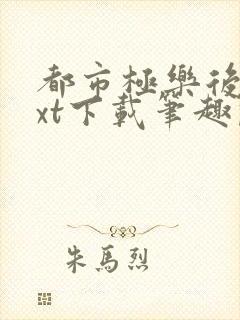 都市極樂後
xt下載筆趣
朱馬烈